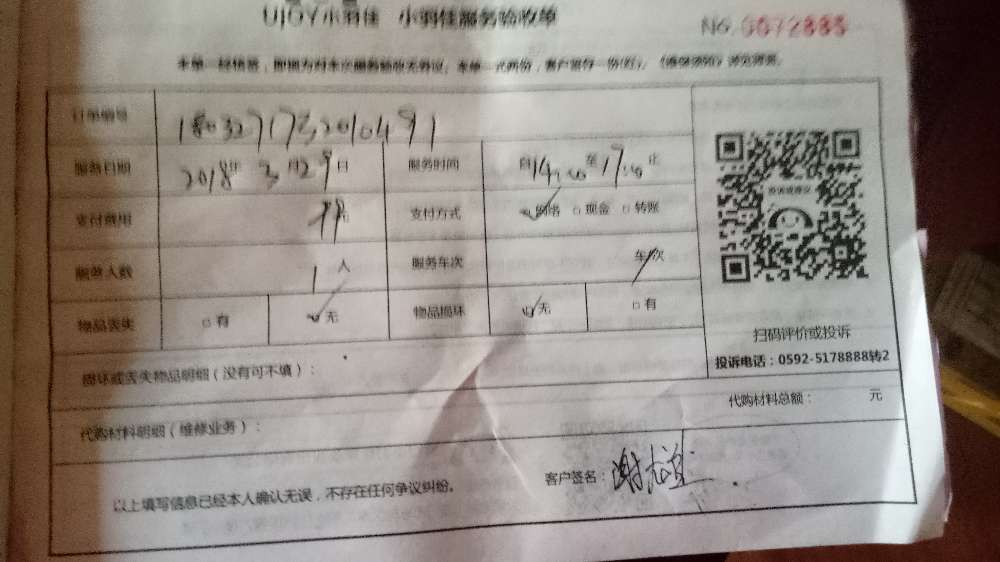 小羽佳 小羽佳服务验收单
No. 0072888
本单一经填写，即视为对本次服务验收无异议。本单一式两份，客户留存一份(红)。
订单编号 1803271732010491
服务日期 2018年3月29日 服务时间 自14:00至17:00止
支付费用 元 支付方式 网络 现金 转账
服务人数 1人 服务车次 车/次
物品丢失 有 无 物品损坏 无 有
投诉或建议
扫码评价或投诉
投诉电话：0592-5178888转2
损坏或丢失物品明细（没有可不填）：
代购材料明细（维修业务）：
代购材料总额： 元
以上填写信息已经本人确认无误，不存在任何争议纠纷。
客户签名：谢